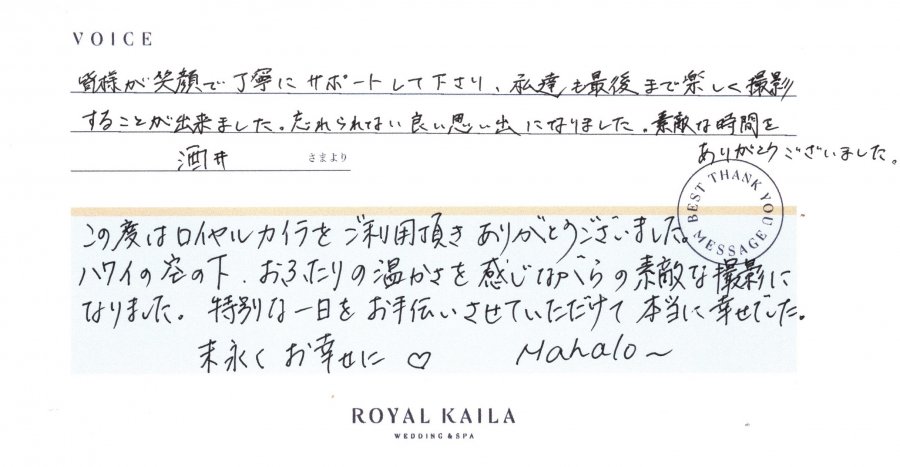 VOICE
皆様が笑顔で丁寧にサポートして下さり、私達も最後まで楽しく撮影
することが出来ました。忘れられない良い思い出になりました。素敵な時間を
ありがとうございました。
酒井 さまより
BEST THANK YOU MESSAGE
この度はロイヤルカイラをご利用頂きありがとうございました。
ハワイの空の下、おふたりの温かさを感じながらの素敵な撮影に
なりました。特別な一日をお手伝いさせていただけて本当に幸せでした。
末永くお幸せに♡ Mahalo～
ROYAL KAILA
WEDDING & SPA